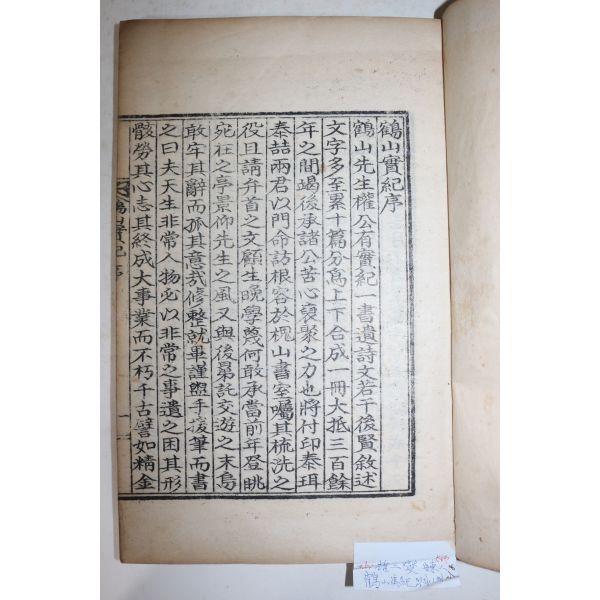 鶴山實紀序
鶴山先生權公有實紀一書遺詩文若干後賢敘述
文字多至累十篇分爲上下合成一冊大抵三百餘
年之間竭後承諸公苦心裒聚之力也將付印泰珥
泰喆兩君以門命訪根容於槐山書室囑其梳洗之
役且請弁首之文顧生晚學蔑何敢承當前年登眺
宛在之亭景仰先生之風又與後昆託交遊之末烏
敢牢其辭而孤其意哉修整就畢謹盥手援筆而書
之曰夫天生非常人物必以非常之事遺之困其形
骸勞其心志其終成大事業而不朽千古譬如精金
鶴山實紀 序
鶴山實紀